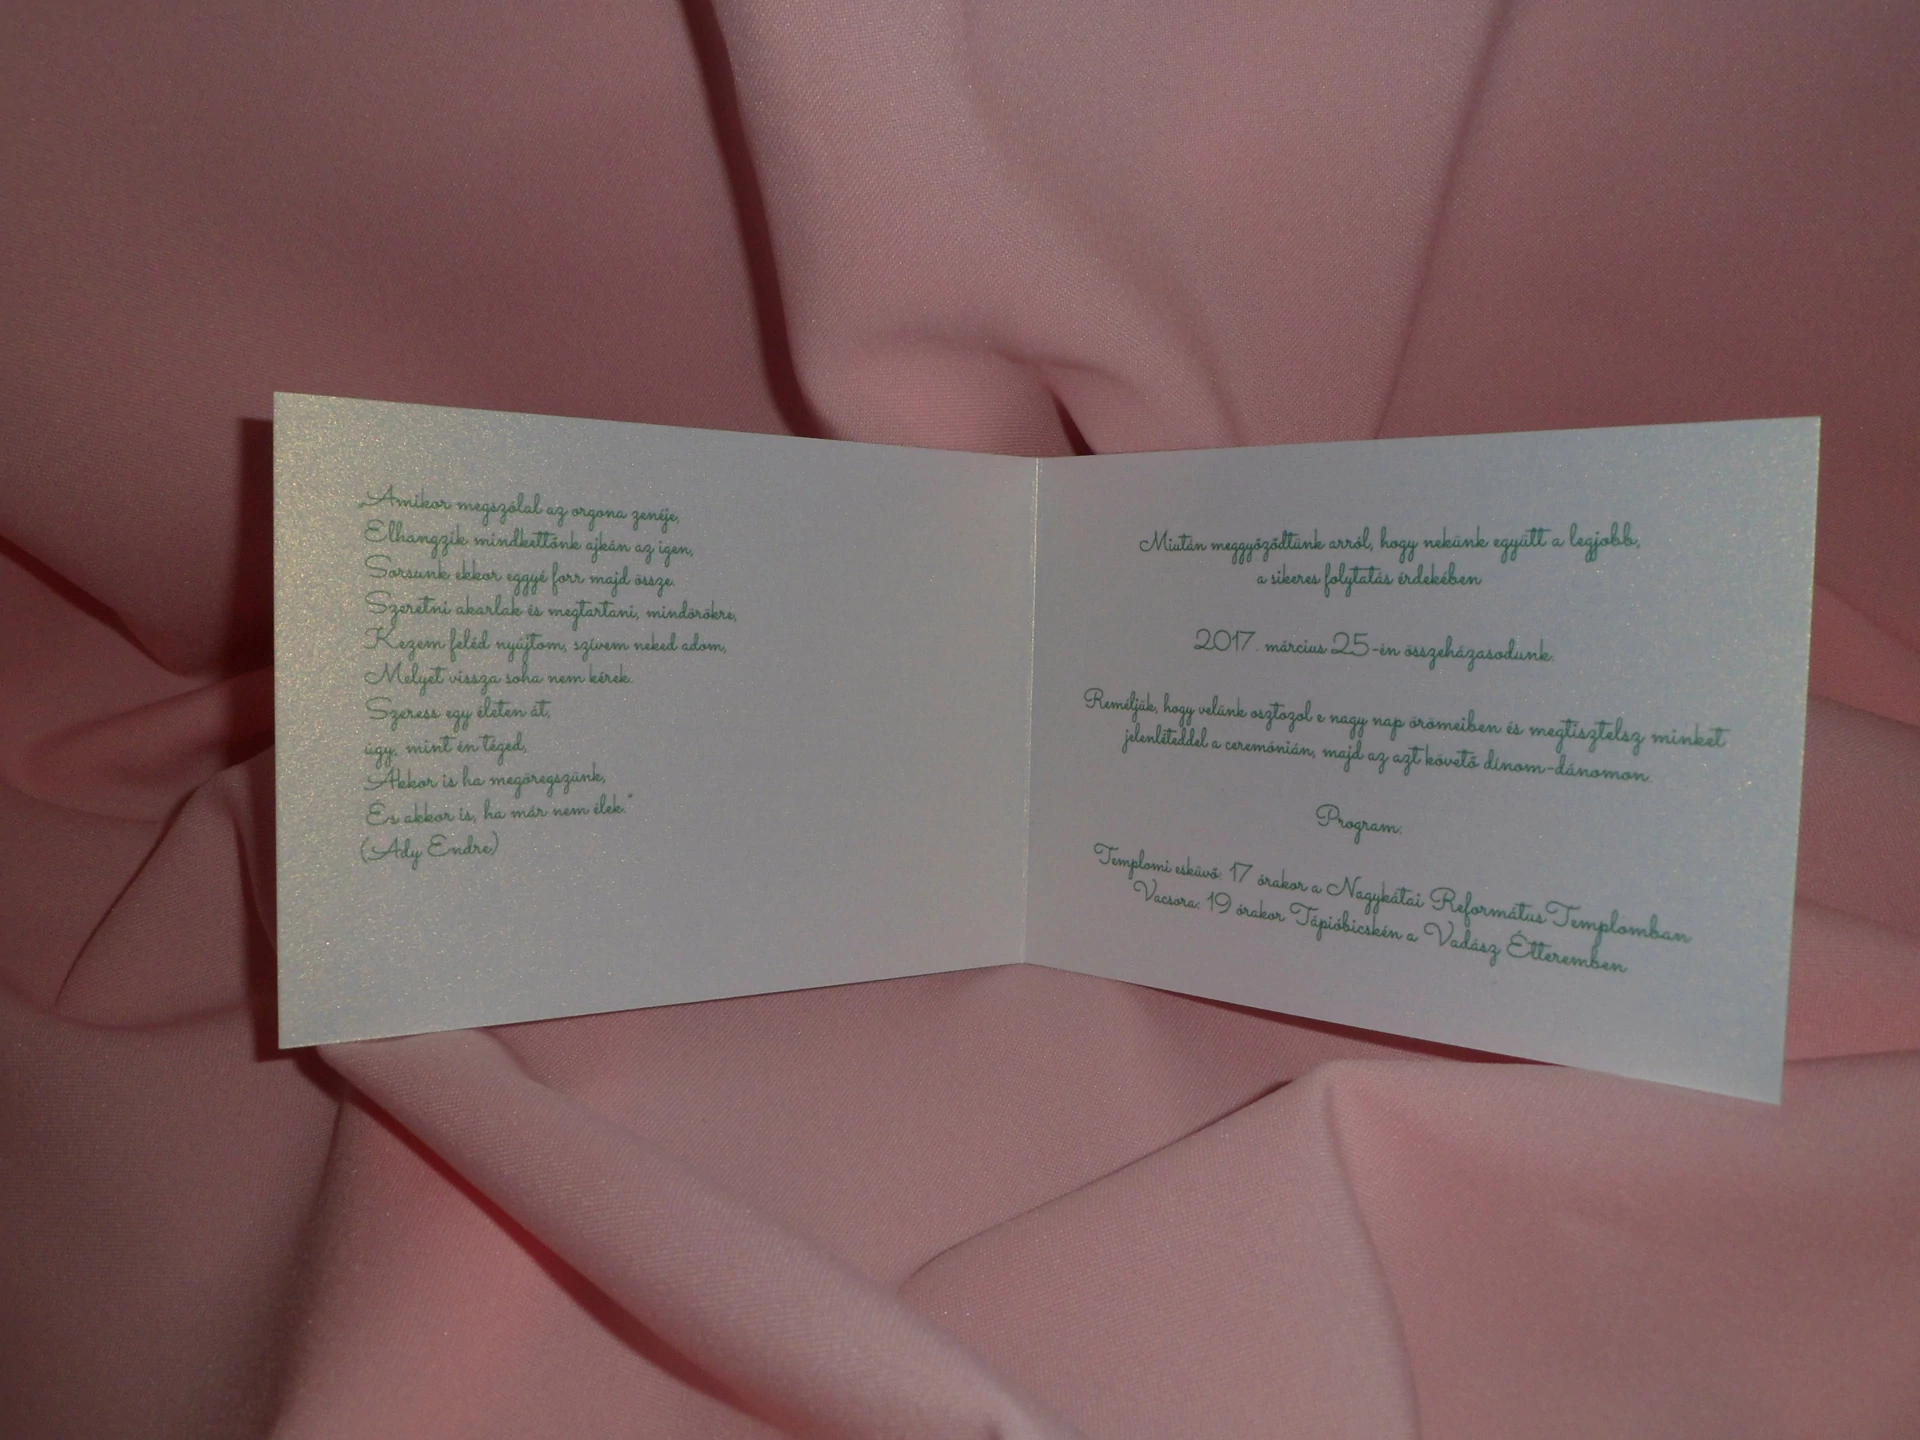 „Amikor megszólal az orgona zenéje,
Elhangzik mindkettőnk ajkán az igen,
Sorsunk ekkor eggyé forr majd össze.
Szeretni akarlak és megtartani, mindörökre,
Kezem feléd nyújtom, szívem neked adom,
Melyet vissza soha nem kérek.
Szeress egy életen át,
úgy, mint én téged,
Akkor is ha megöregszünk,
És akkor is, ha már nem élek."
(Ady Endre)
Miután meggyőződtünk arról, hogy nekünk együtt a legjobb,
a sikeres folytatás érdekében
2017. március 25-én összeházasodunk.
Reméljük, hogy velünk osztozol e nagy nap örömeiben és megtisztelsz minket
jelenléteddel a ceremónián, majd az azt követő dínom-dánomon.
Program:
Templomi esküvő: 17 órakor a Nagykátai Református Templomban
Vacsora: 19 órakor Tápióbicskén a Vadász Étteremben